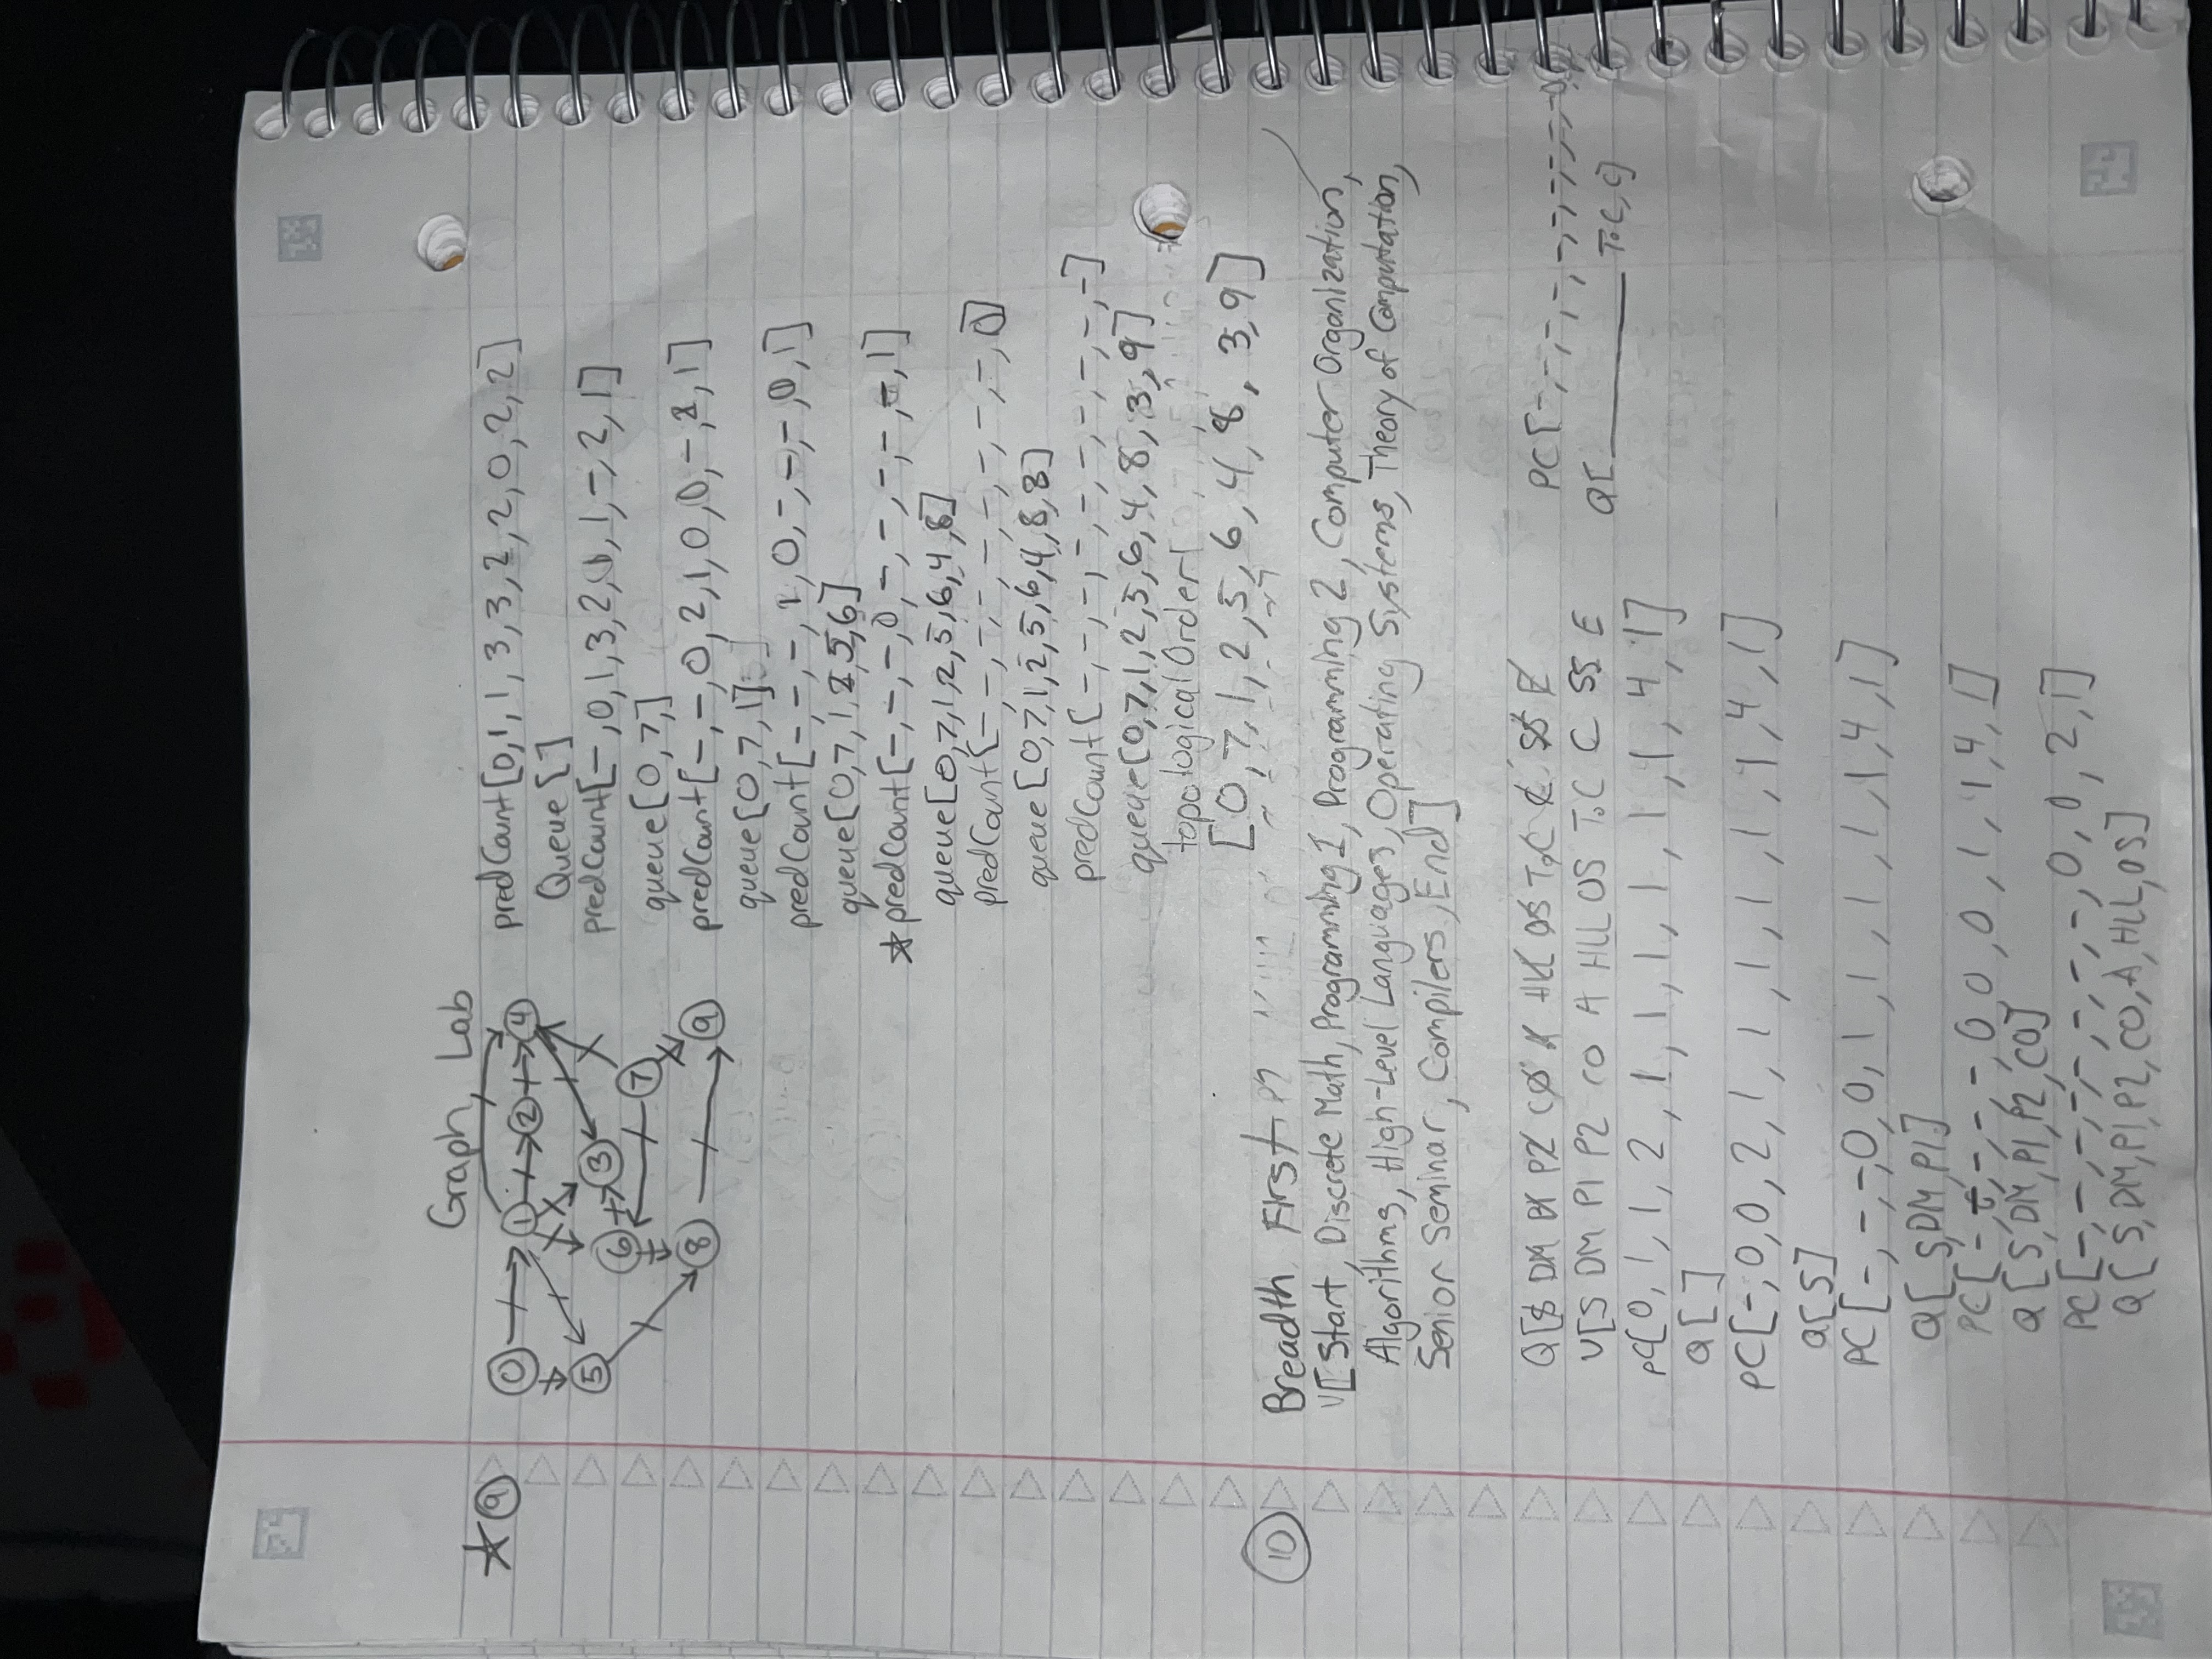 Graph Lab
★ 9
0 1 2 4
5 6 3
7
8 9
predCount[0,1,1,3,3,2,2,0,2,2]
Queue[]
predCount[-,0,1,3,2,1,1,-,2,1]
queue[0,7,]
predCount[-,-,0,2,1,0,0,-,1,1]
queue[0,7,1]
predCount[-,-,-,1,0,-,-,-,0,1]
queue[0,7,1,2,5,6]
★ predCount[-,-,-,0,-,-,-,-,-,1]
queue[0,7,1,2,5,6,4,8]
predCount[-,-,-,-,-,-,-,-,-,0]
queue[0,7,1,2,5,6,4,8,8]
predCount[-,-,-,-,-,-,-,-,-,-]
queue[0,7,1,2,5,6,4,8,3,9]
topological Order[
[0,7,1,2,5,6,4,8,3,9]
10 Breadth First
V[Start, Discrete Math, Programming 1, Programming 2, Computer Organization,
Algorithms, High-Level Languages, Operating Systems, Theory of Computation,
Senior Seminar, Compilers, End]
Q[S DM P1 P2 CO A HLL OS ToC C SS E
V[S DM P1 P2 CO A HLL OS ToC C SS E
PC[0,1,1,2,1,1,1,1,1,1,4,1]
Q[]
PC[-,0,0,2,1,1,1,1,1,1,4,1]
Q[S]
PC[-,-,-,0,0,1,1,1,1,1,4,1]
Q[S,DM,P1]
PC[-,-,-,-,-,0,0,0,1,1,4,1]
Q[S,DM,P1,P2,CO]
PC[-,-,-,-,-,-,-,-,0,0,2,1]
Q[S,DM,P1,P2,CO,A,HLL,OS]
PC[-,-,-,-,-,-,-,-,-,-,0,
Q[_______ ToC,C]